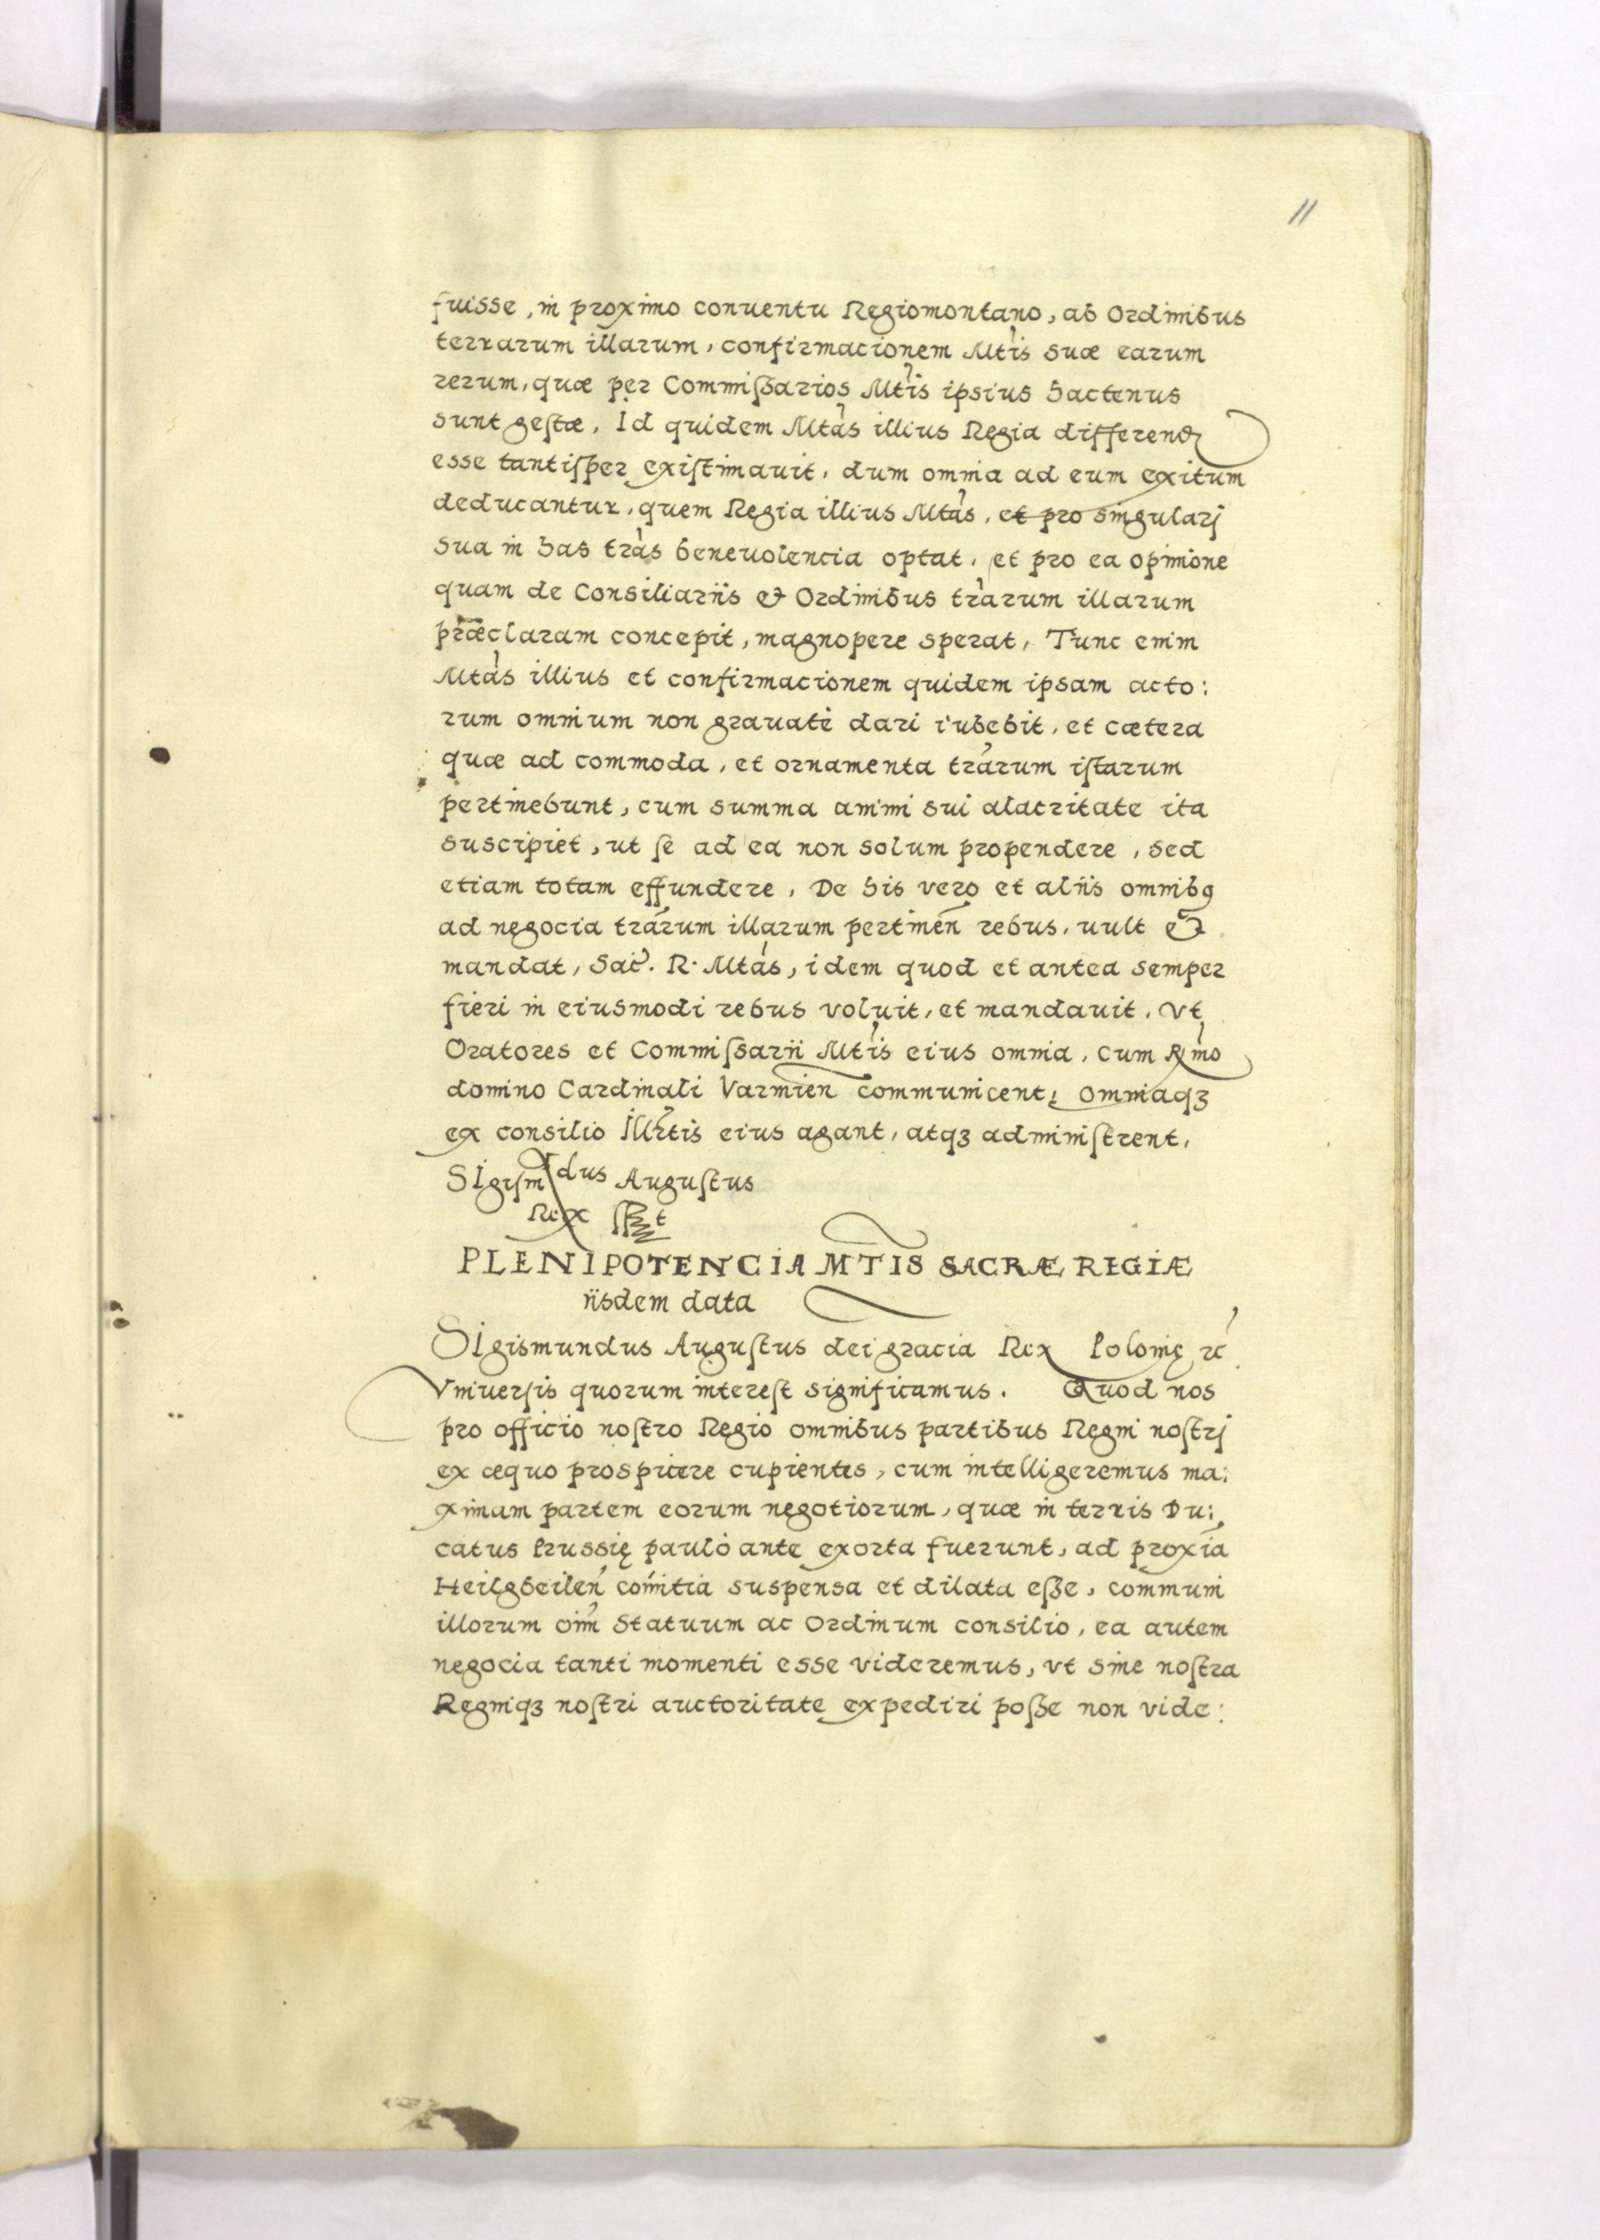 11
fuisse, in proximo conuentu Regiomontano, ab Ordinibus
terrarum illarum, confirmacionem Mtis suæ earum
rerum, quæ per Commißarios Mtis ipsius hactenus
sunt gestæ, Id quidem Mtas illius Regia differend
esse tantisper existimauit, dum omnia ad eum exitum
deducantur, quem Regia illius Mtas, et pro singularj
sua in has tras beneuolencia optat, et pro ea opinione
quam de Consiliariis & Ordinibus trarum illarum
præclaram concepit, magnopere sperat, Tunc enim
Mtas illius et confirmacionem quidem ipsam acto:
rum omnium non grauatè dari iubebit, et cætera
quæ ad commoda, et ornamenta trarum istarum
pertinebunt, cum summa animi sui alacritate ita
suscipiet, ut se ad ea non solum propendere, sed
etiam totam effundere, De his vero et aliis omnibq
ad negocia trarum illarum pertinen rebus, uult &
mandat, Sac. R. Mtas, idem quod et antea semper
fieri in eiusmodi rebus voluit, et mandauit, Vt
Oratores et Commissarii Mtis eius omnia, cum Rmo
domino Cardinali Varmien communicent, omniaqȝ
ex consilio Illrtis eius agant, atqȝ administrent,
Sigismdus Augustus
Rex sst
PLENIPOTENCIA MTIS SACRÆ REGIÆ
iisdem data
Sigismundus Augustus dei gracia Rex Polonię rc
Vniuersis quorum interest significamus. Quod nos
pro officio nostro Regio omnibus partibus Regni nostrj
ex æquo prospicere cupientes, cum intelligeremus ma:
ximam partem eorum negotiorum, quæ in terris Du:
catus Prussię paulò ante exorta fuerunt, ad proxia
Heilgbeilen comitia suspensa et dilata eße, communi
illorum oim Statuum ac Ordinum consilio, ea autem
negocia tanti momenti esse videremus, vt sine nostra
Regniqȝ nostri auctoritate expediri poße non vide: